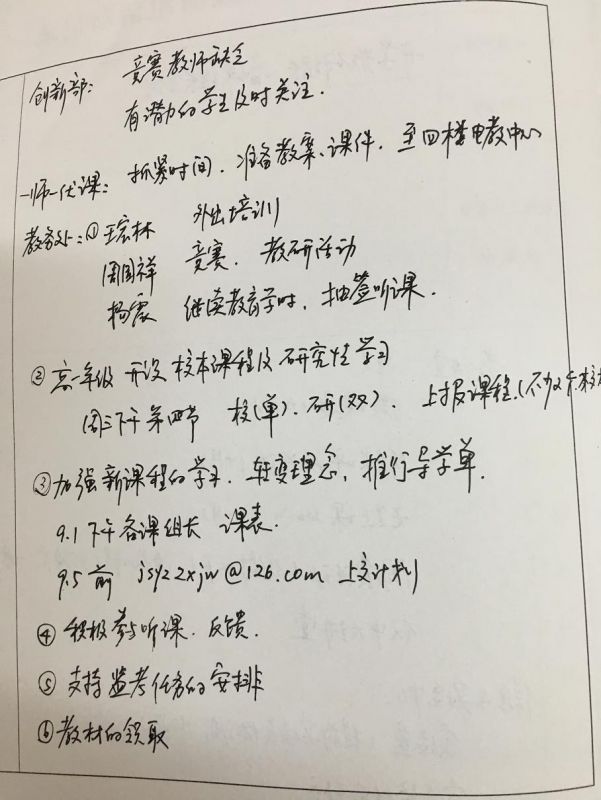 创新部： 竞赛教师缺乏
有潜力的学生及时关注.
一师一优课： 抓紧时间. 准备教案、课件. 至四楼电教中心
教务处：① 王宏林 外出培训
周国祥 竞赛. 教研活动
杨震 继续教育学时. 抽签听课.
② 高一年级 开设校本课程及研究性学习
周三下午第四节 校(单). 研(双). 上报课程.(不少于
③ 加强新课程的学习. 转变理念, 推行导学单.
9.1 下午各课组长 课表.
9.5 前 jsyzzxjw@126.com 上交计划
④ 积极参与听课. 反馈.
⑤ 支持监考任务的安排
⑥ 教材的领取